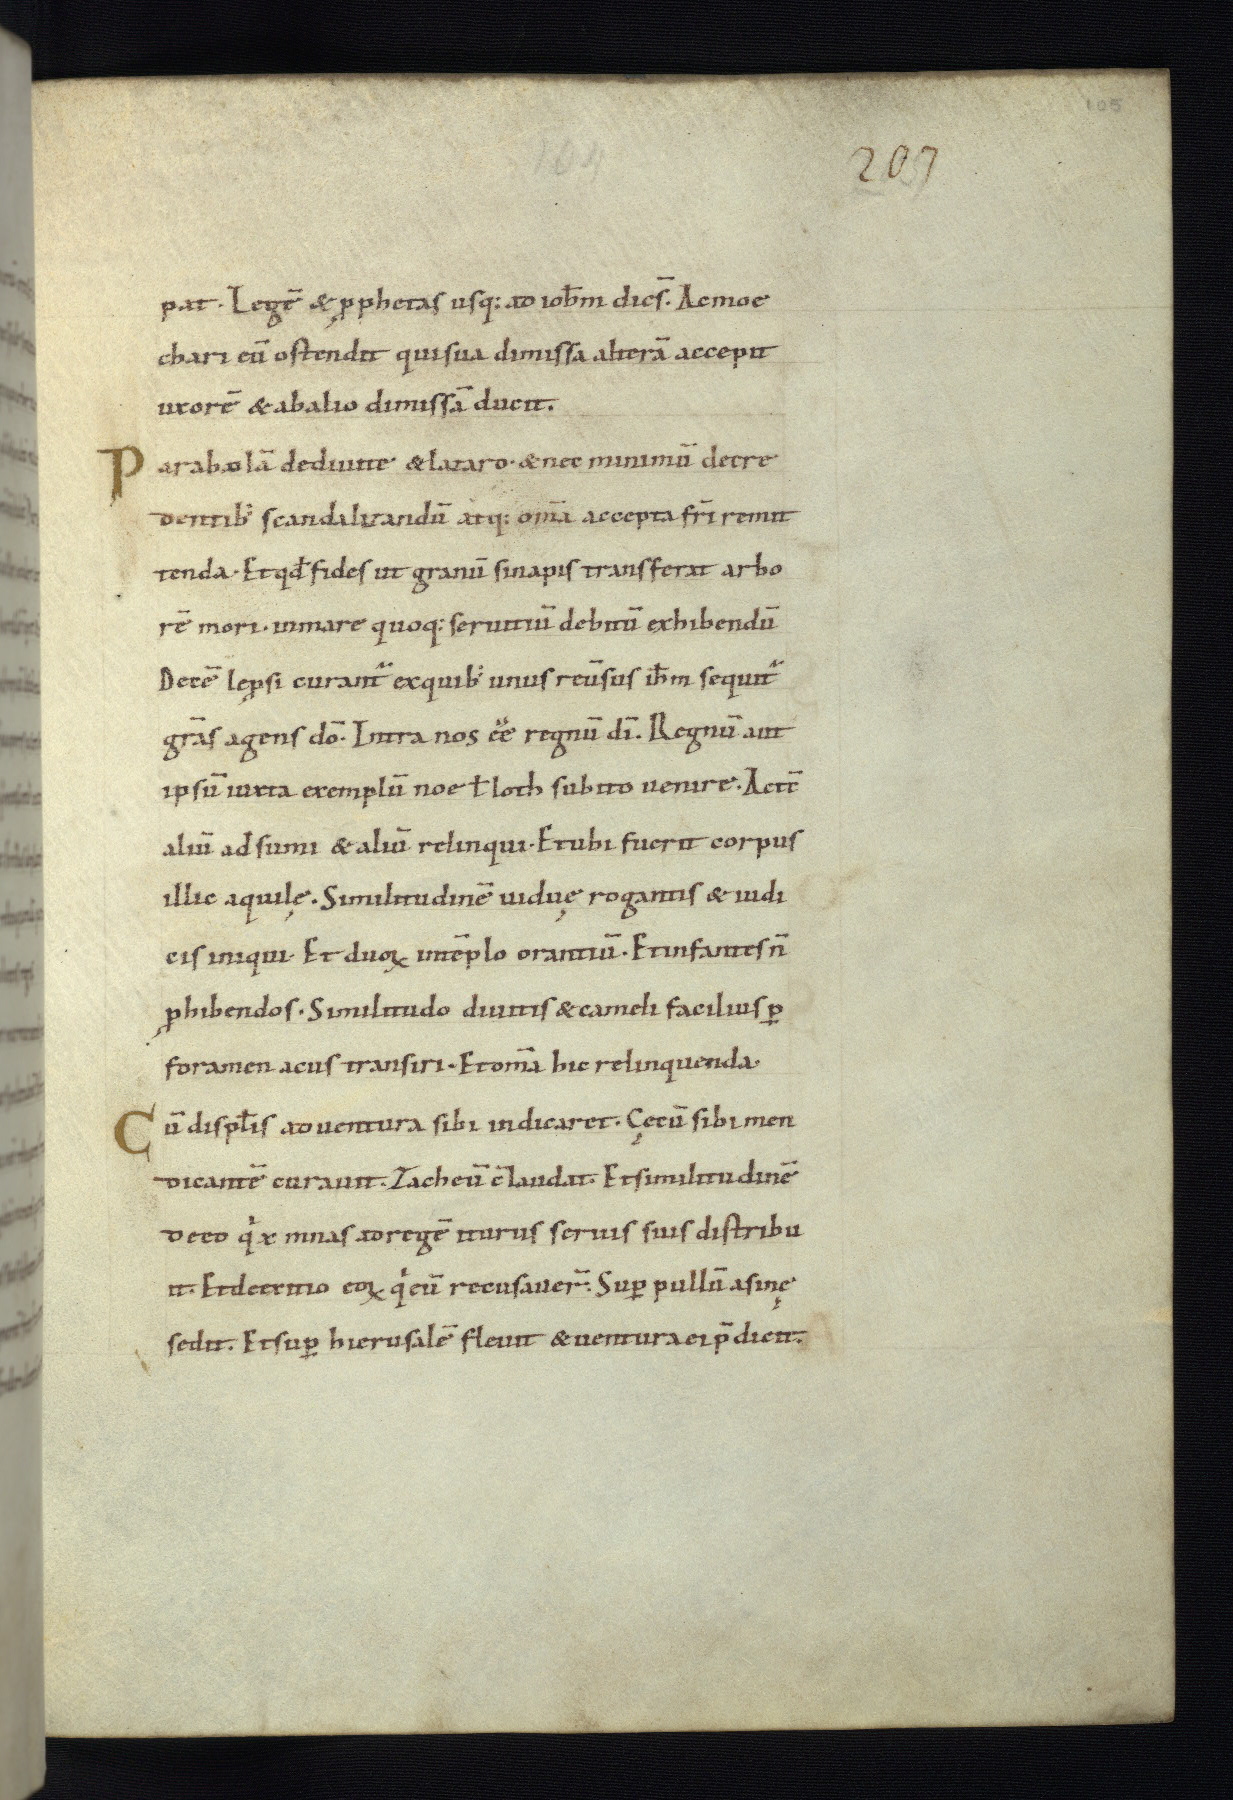 105
104
207
pat · Legē & ꝓphetas usq: ad ioħm dicſ̄. Ac moe
chari eū ostendit qui sua dimissa alterā accepit
uxorē & ab alio dimissā ducit.
Parabolā de diuite & lazaro · & nec minimū de cre
dentib; scandalizandū atq: om̄a accepta fr̄i remit
tenda · Et qđ fides ut granū sinapis transferat arbo
rē mori · in mare quoq: seruitiū debitū exhibendū
Decē lepsi curant᷑ ex quib; unus reūsus ih̄m sequit᷑
gr̄as agens dō. Intra nos eē regnū dī. Regnū aut
ipsū iuxta exemplū noe ł loth subito uenire · Ac tē
aliū adsumi & aliū relinqui · Et ubi fuerit corpus
illic aquilę. Similitudinē uiduę rogantis & iudi
cis iniqui · Et duoꝝ in tēplo orantiū · Et infantes n̄
ꝓhibendos · Similitudo diuitis & cameli facilius ꝑ
foramen acus transiri · Et om̄a hic relinquenda ·
Cū discipłis aduentura sibi indicaret · Cęcū sibi men
dicantē curauit. Zacheū c̄laudat. Et similitudinē
de eo qⁱ x mnas ad regē iturus seruis suis distribu
it. Et detritio eoꝝ qⁱ eū recusauer̄. Suꝑ pullū asinę
sedit. Et suꝑ hierusalē fleuit & uentura ei p̄dicit.